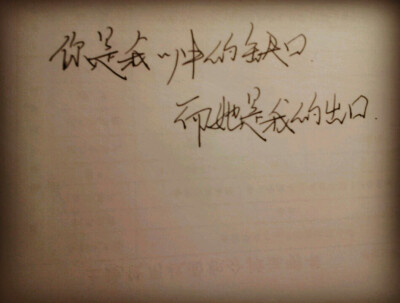 你是我心中的缺口
而她是我的出口.